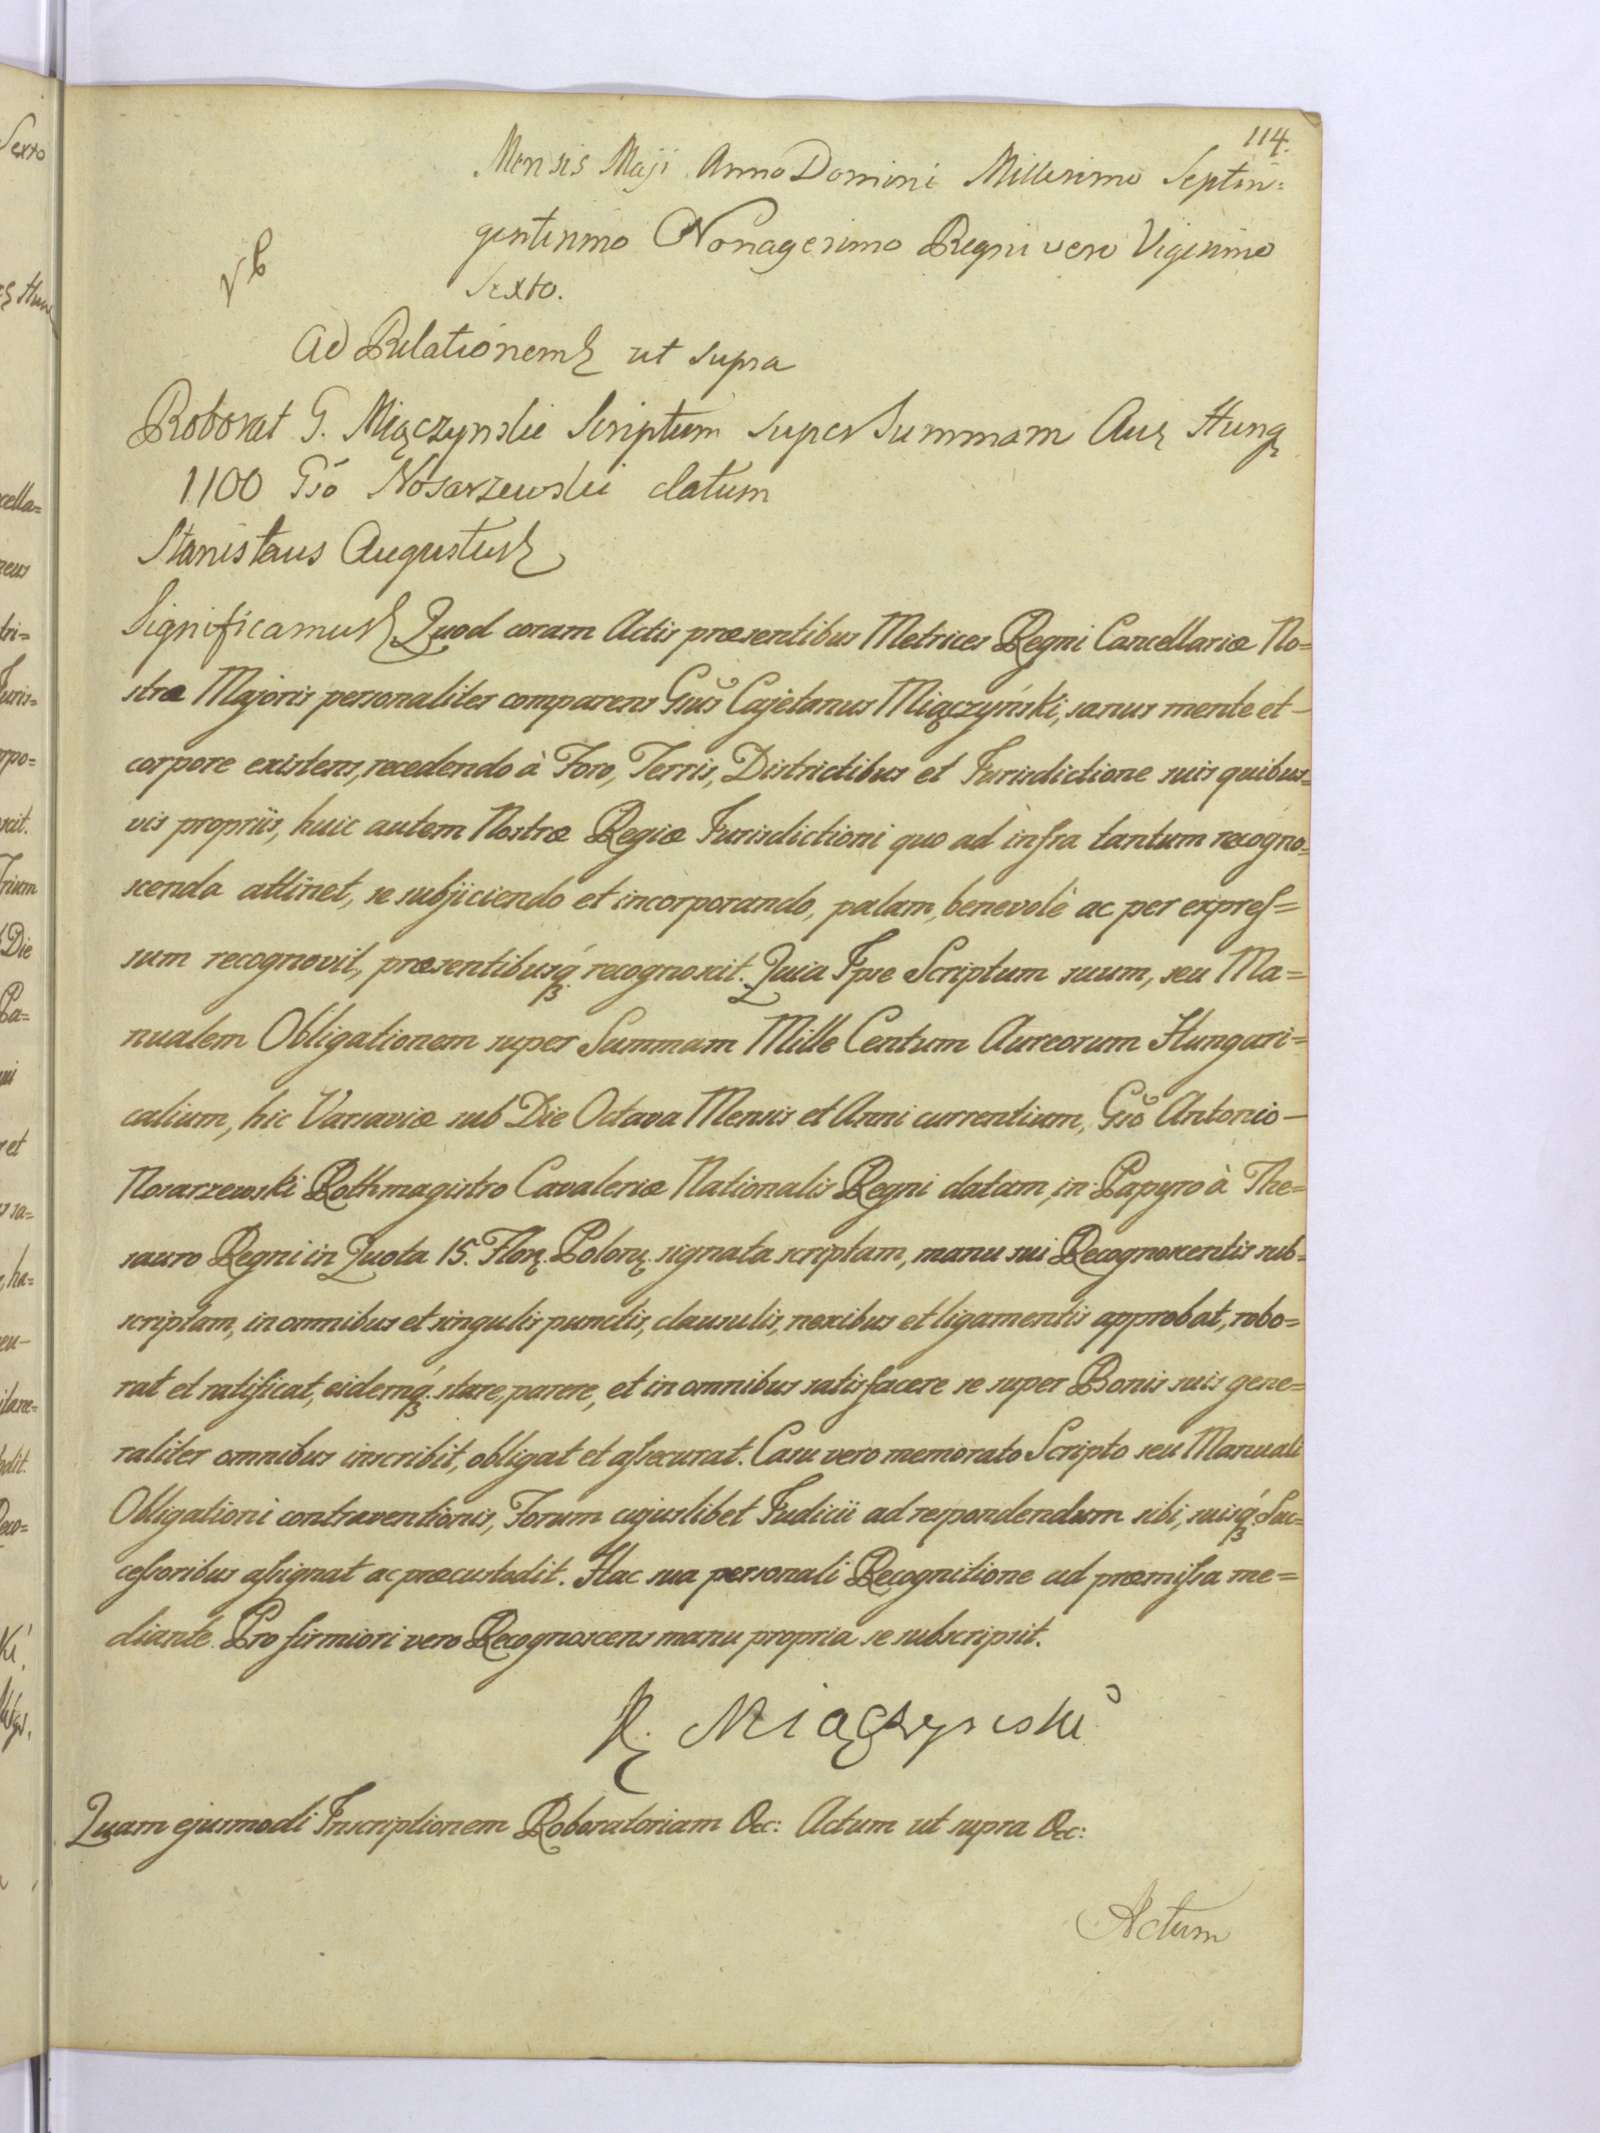 114.
Mensis Maji Anno Domini Millesimo Septin=
gentesimo Nonagesimo Regni vero Vigesimo
Sexto.
Ad Relationem ut supra
Roborat G. Miączynski Scriptum super Summam Aur Hung
1100 Gsō Nosarzewski datum
Stanislaus Augustus
Significamus Quod coram Actis præsentibus Metrices Regni Cancellariæ No=
stræ Majoris personaliter comparens Gsūs Cajetanus Miączyński, sanus mente et
corpore existens, recedendo à Foro, Terris, Districtibus et Jurisdictione suis quibus=
vis propriis, huic autem Nostræ Regiæ Jurisdictioni quo ad infra tantum recogno=
scenda attinet, se subjiciendo et incorporando, palam, benevolè ac per expres=
sum recognovit, præsentibusq́ꝫ recognoscit. Quia Ipse Scriptum suum, seu Ma=
nualem Obligationem super Summam Mille Centum Aureorum Hungari=
calium, hic Varsaviæ sub Die Octava Mensis et Anni currentium, Gsō Antonio
Nosarzewski Rothmagistro Cavaleriæ Nationalis Regni datam, in Papyro à The=
sauro Regni in Quota 15. Flor. Polon. signata scriptam, manu sui Recognoscentis sub=
scriptam, in omnibus et singulis punctis, clausulis, nexibus et ligamentis approbat, robo=
rat et ratificat, eidemq́ꝫ stare, parere, et in omnibus satisfacere se super Bonis suis gene=
raliter omnibus inscribit, obligat et assecurat. Casu vero memorato Scripto seu Manuali
Obligationi contraventionis, Forum cujuslibet Judicii ad respondendum sibi, suisq́ꝫ Suc=
cessoribus assignat ac præcustodit. Hac sua personali Recognitione ad præmissa me=
diante. Pro firmiori vero Recognoscens manu propria se subscripsit.
K. Miączynski
Quam ejusmodi Inscriptionem Roboratoriam &c: Actum ut supra &c:
Actum